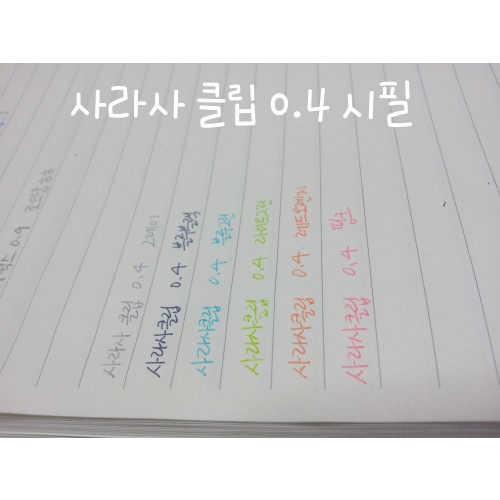 사라사 클립 0.4 시필
0.9
사라사 클립 0.4 그레이
사라사클립 0.4 블루블랙
사라사클립 0.4 블루그린
사라사클립 0.4 라이트그린
사라사클립 0.4 레드오렌지
사라사클립 0.4 핑크